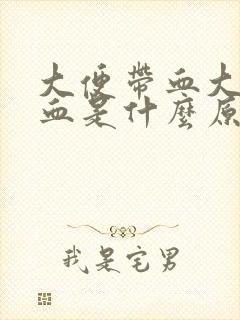 大便带血大
血是什麼原
我是宅男